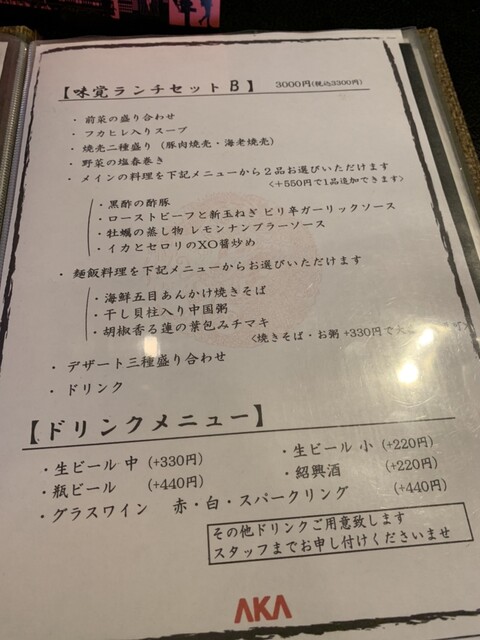 【味覚ランチセット B】 3000円(税込3300円)
・前菜の盛り合わせ
・フカヒレ入りスープ
・焼売二種盛り（豚肉焼売・海老焼売）
・野菜の塩春巻き
・メインの料理を下記メニューから２品お選びいただけます
<＋550円で1品追加できます>
・黒酢の酢豚
・ローストビーフと新玉ねぎ ピリ辛ガーリックソース
・牡蠣の蒸し物 レモンナンプラーソース
・イカとセロリのXO醤炒め
・麺飯料理を下記メニューからお選びいただけます
・海鮮五目あんかけ焼きそば
・干し貝柱入り中国粥
・胡椒香る蓮の葉包みチマキ
<焼きそば・お粥 +330円で大
・デザート三種盛り合わせ
・ドリンク
【ドリンクメニュー】
・生ビール 中 (+330円) ・生ビール 小 (+220円)
・瓶ビール (+440円) ・紹興酒 (+220円)
・グラスワイン 赤・白・スパークリング (+440円)
その他ドリンクご用意致します
スタッフまでお申し付けくださいませ
AKA